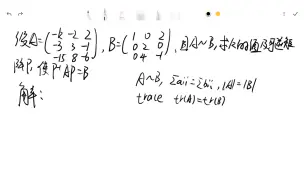 设A=(-k -2 2
-3 3 -1
-15 8 -6), B=(1 0 2
0 2 0
0 4 -1), 且A~B, 求k的值及可逆矩
阵P, 使P⁻¹AP=B
A~B, Σaii=Σbii, |A|=|B|
解: trace tr(A)=tr(B)